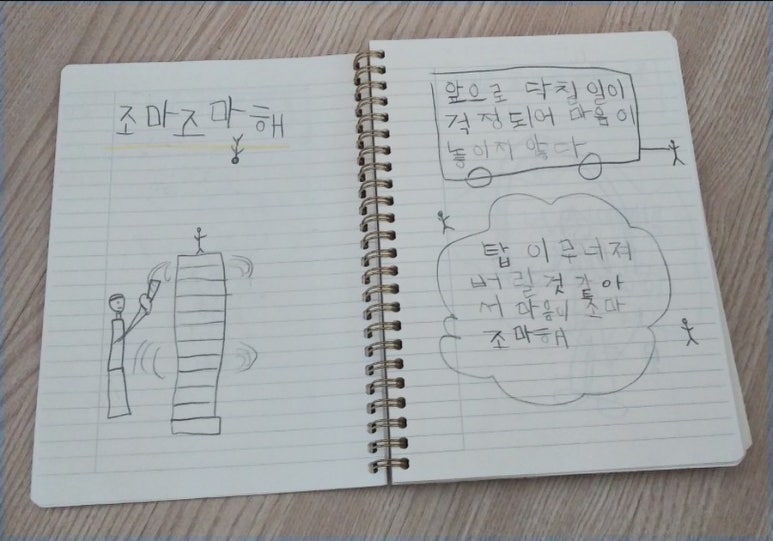 조마조마해
앞으로 닥칠 일이
걱정되어 마음이
놓이지 않다
탑이 무너져
버릴것 같아
서 마음이 조마
조마해